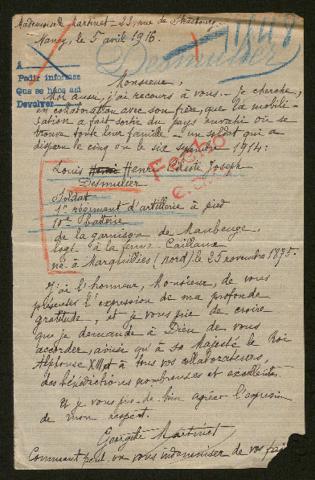 Mademoiselle Martinet - 23, rue de Strasbourg
Nancy, le 5 avril 1916.
Desmulier
A
Pedir informes
Que se hace así
Devolver
Monsieur,
Moi aussi, j'ai recours à vous. Je cherche,
en collaboration avec son frère, que la mobili-
sation a fait sortir du pays envahi où se
trouve toute leur famille, un soldat qui a
disparu le cinq ou le six septembre 1914:
Louis Henri Celeste Joseph
Desmulier
Soldat
1er régiment d'artillerie à pied
10me Batterie
de la garnison de Maubeuge
logt. à la ferme Caillaux
né à Marquillies (nord) le 25 novembre 1875.
Fecho
J'ai l'honneur, Monsieur, de vous
présenter l'expression de ma profonde
gratitude, et je vous prie de croire
que je demande à Dieu de vous
accorder, ainsi qu'à sa Majesté le Roi
Alphonse XIII et à tous vos collaborateurs,
des bénédictions nombreuses et
et je vous prie de bien agréer l'expression
de mon respect.
Georgette Martinet
Comment peut-on vous indemniser de vos